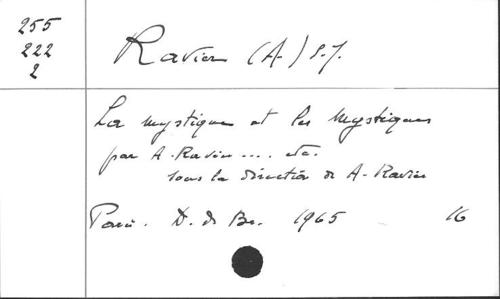 255
222
2
Ravier (A.) S.J.
La mystique et les mystiques
par A. Ravier .... etc.
sous la direction de A. Ravier
Paris. D. de Br. 1965 16